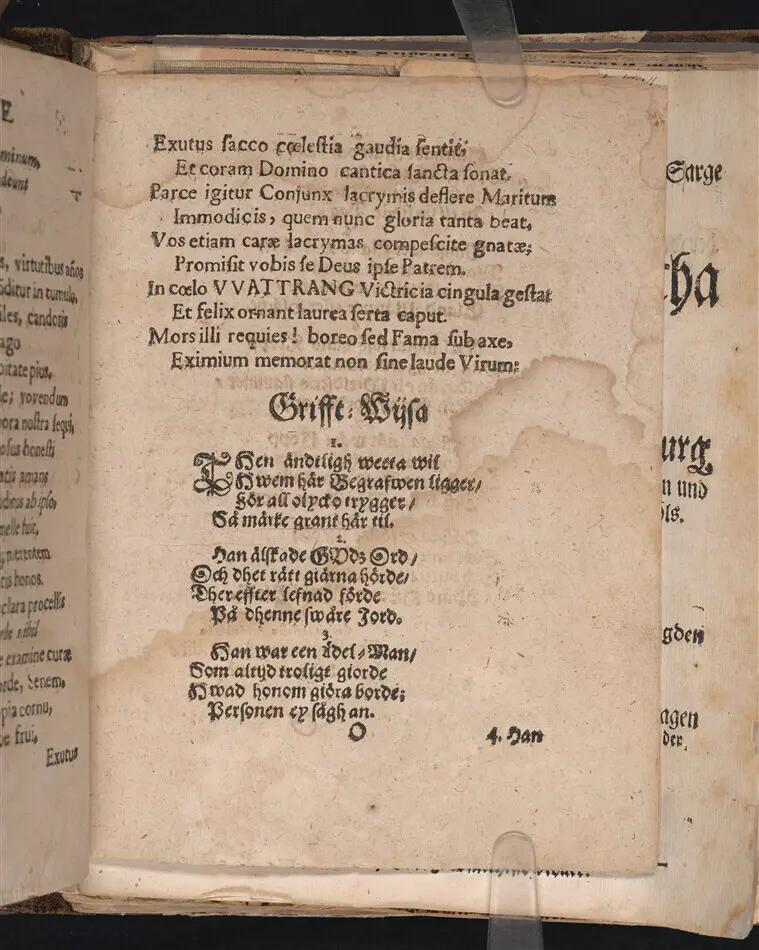 E
minum,
deunt
s, virtutibus años
ditur in tumulo,
iles, candoris
ago
pitate pius,
le; vovendum
ora nostra sequi,
osus honesti
amans
ditus ab ipso,
melle fuit,
tis honos.
clara procellis
nihil
e examine curæ
orde, Senem,
pia cornu,
frui,
Exutus
Exutus sacco cœlestia gaudia sentit;
Et coram Domino cantica sancta sonat.
Parce igitur Conjunx lacrymis deflere Maritum
Immodicis, quem nunc gloria tanta beat,
Vos etiam caræ lacrymas compescite gnatæ;
Promisit vobis se Deus ipse Patrem.
In cœlo VVATTRANG Victricia cingula gestat
Et felix ornant laurea serta caput.
Mors illi requies! boreo sed Fama sub axe,
Eximium memorat non sine laude Virum;
Grifft-Wijsa
1.
THen ändtligh weeta wil
Hwem här Begrafwen ligger/
För all olycko trygger/
Så märke grant här til.
2.
Han älskade GUDz Ord/
Och dhet rätt giärna hörde/
Ther effter lefnad förde
På dhenne swåre Jord.
3.
Han war een Ädel-Man/
Som altijd troligt giorde
Hwad honom giöra borde;
Personen ey sågh an.
O
4. Han
Sarge
ha
urg
n und
ls.
gden
agen
der.